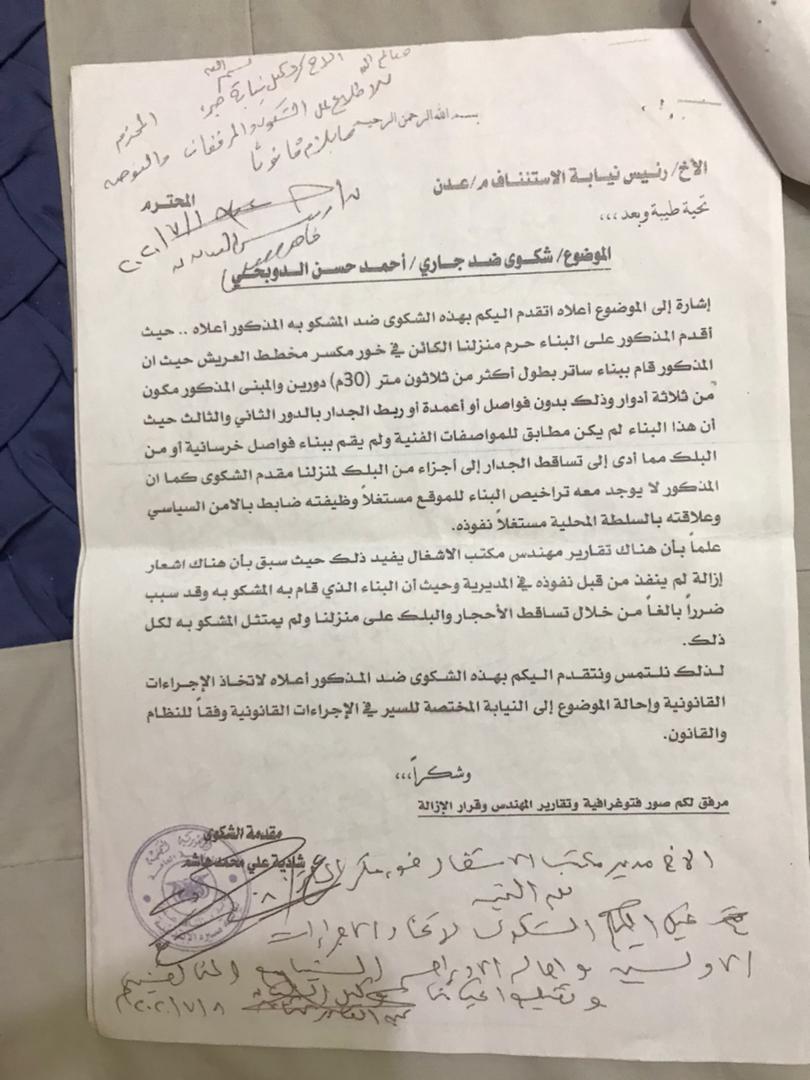 الاخ / وكيل نيابة صيرة المحترم
للاطلاع على الشكوى والمرفقات والتوجيه
بما يلزم قانوناً
بسم الله الرحمن الرحيم
الأخ/ رئيس نيابة الاستئناف م/عدن
المحترم
تحية طيبة وبعد ،،،
الموضوع/ شكوى ضد جاري/ أحمد حسن الدوبحي
إشارة إلى الموضوع أعلاه اتقدم اليكم بهذه الشكوى ضد المشكو به المذكور أعلاه .. حيث
أقدم المذكور على البناء حرم منزلنا الكائن في خور مكسر مخطط العريش حيث ان
المذكور قام ببناء ساتر بطول أكثر من ثلاثون متر (30م) دورين والمبنى المذكور مكون
من ثلاثة أدوار وذلك بدون فواصل أو أعمدة أو ربط الجدار بالدور الثاني والثالث حيث
أن هذا البناء لم يكن مطابق للمواصفات الفنية ولم يقم ببناء فواصل خرسانية أو من
البلك مما أدى إلى تساقط الجدار إلى أجزاء من البلك لمنزلنا مقدم الشكوى كما ان
المذكور لا يوجد معه تراخيص البناء للموقع مستغلاً وظيفته ضابط بالامن السياسي
وعلاقته بالسلطة المحلية مستغلاً نفوذه.
علماً بأن هناك تقارير مهندس مكتب الاشغال يفيد ذلك حيث سبق بأن هناك اشعار
إزالة لم ينفذ من قبل نفوذه في المديرية وحيث أن البناء الذي قام به المشكو به وقد سبب
ضرراً بالغاً من خلال تساقط الأحجار والبلك على منزلنا ولم يمتثل المشكو به لكل
ذلك.
لذلك نلتمس ونتقدم اليكم بهذه الشكوى ضد المذكور أعلاه لاتخاذ الإجراءات
القانونية وإحالة الموضوع إلى النيابة المختصة للسير في الإجراءات القانونية وفقاً للنظام
والقانون.
وشكراً،،،
مرفق لكم صور فتوغرافية وتقارير المهندس وقرار الإزالة
مقدمة الشكوى
شادية علي محمد هاشم
الاخ مدير مكتب الاشغال خور مكسر المحترم
بعد التحية
نحيل اليكم الشكوى لاتخاذ الاجراءات